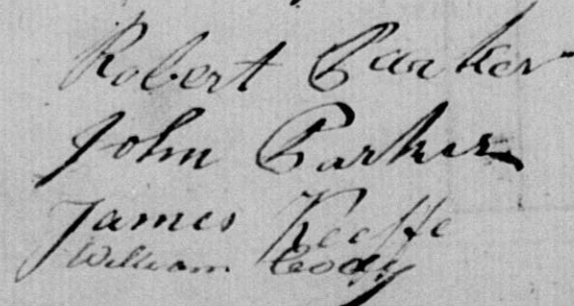 Robert Parker
John Parker
James Keeffe
William Cody